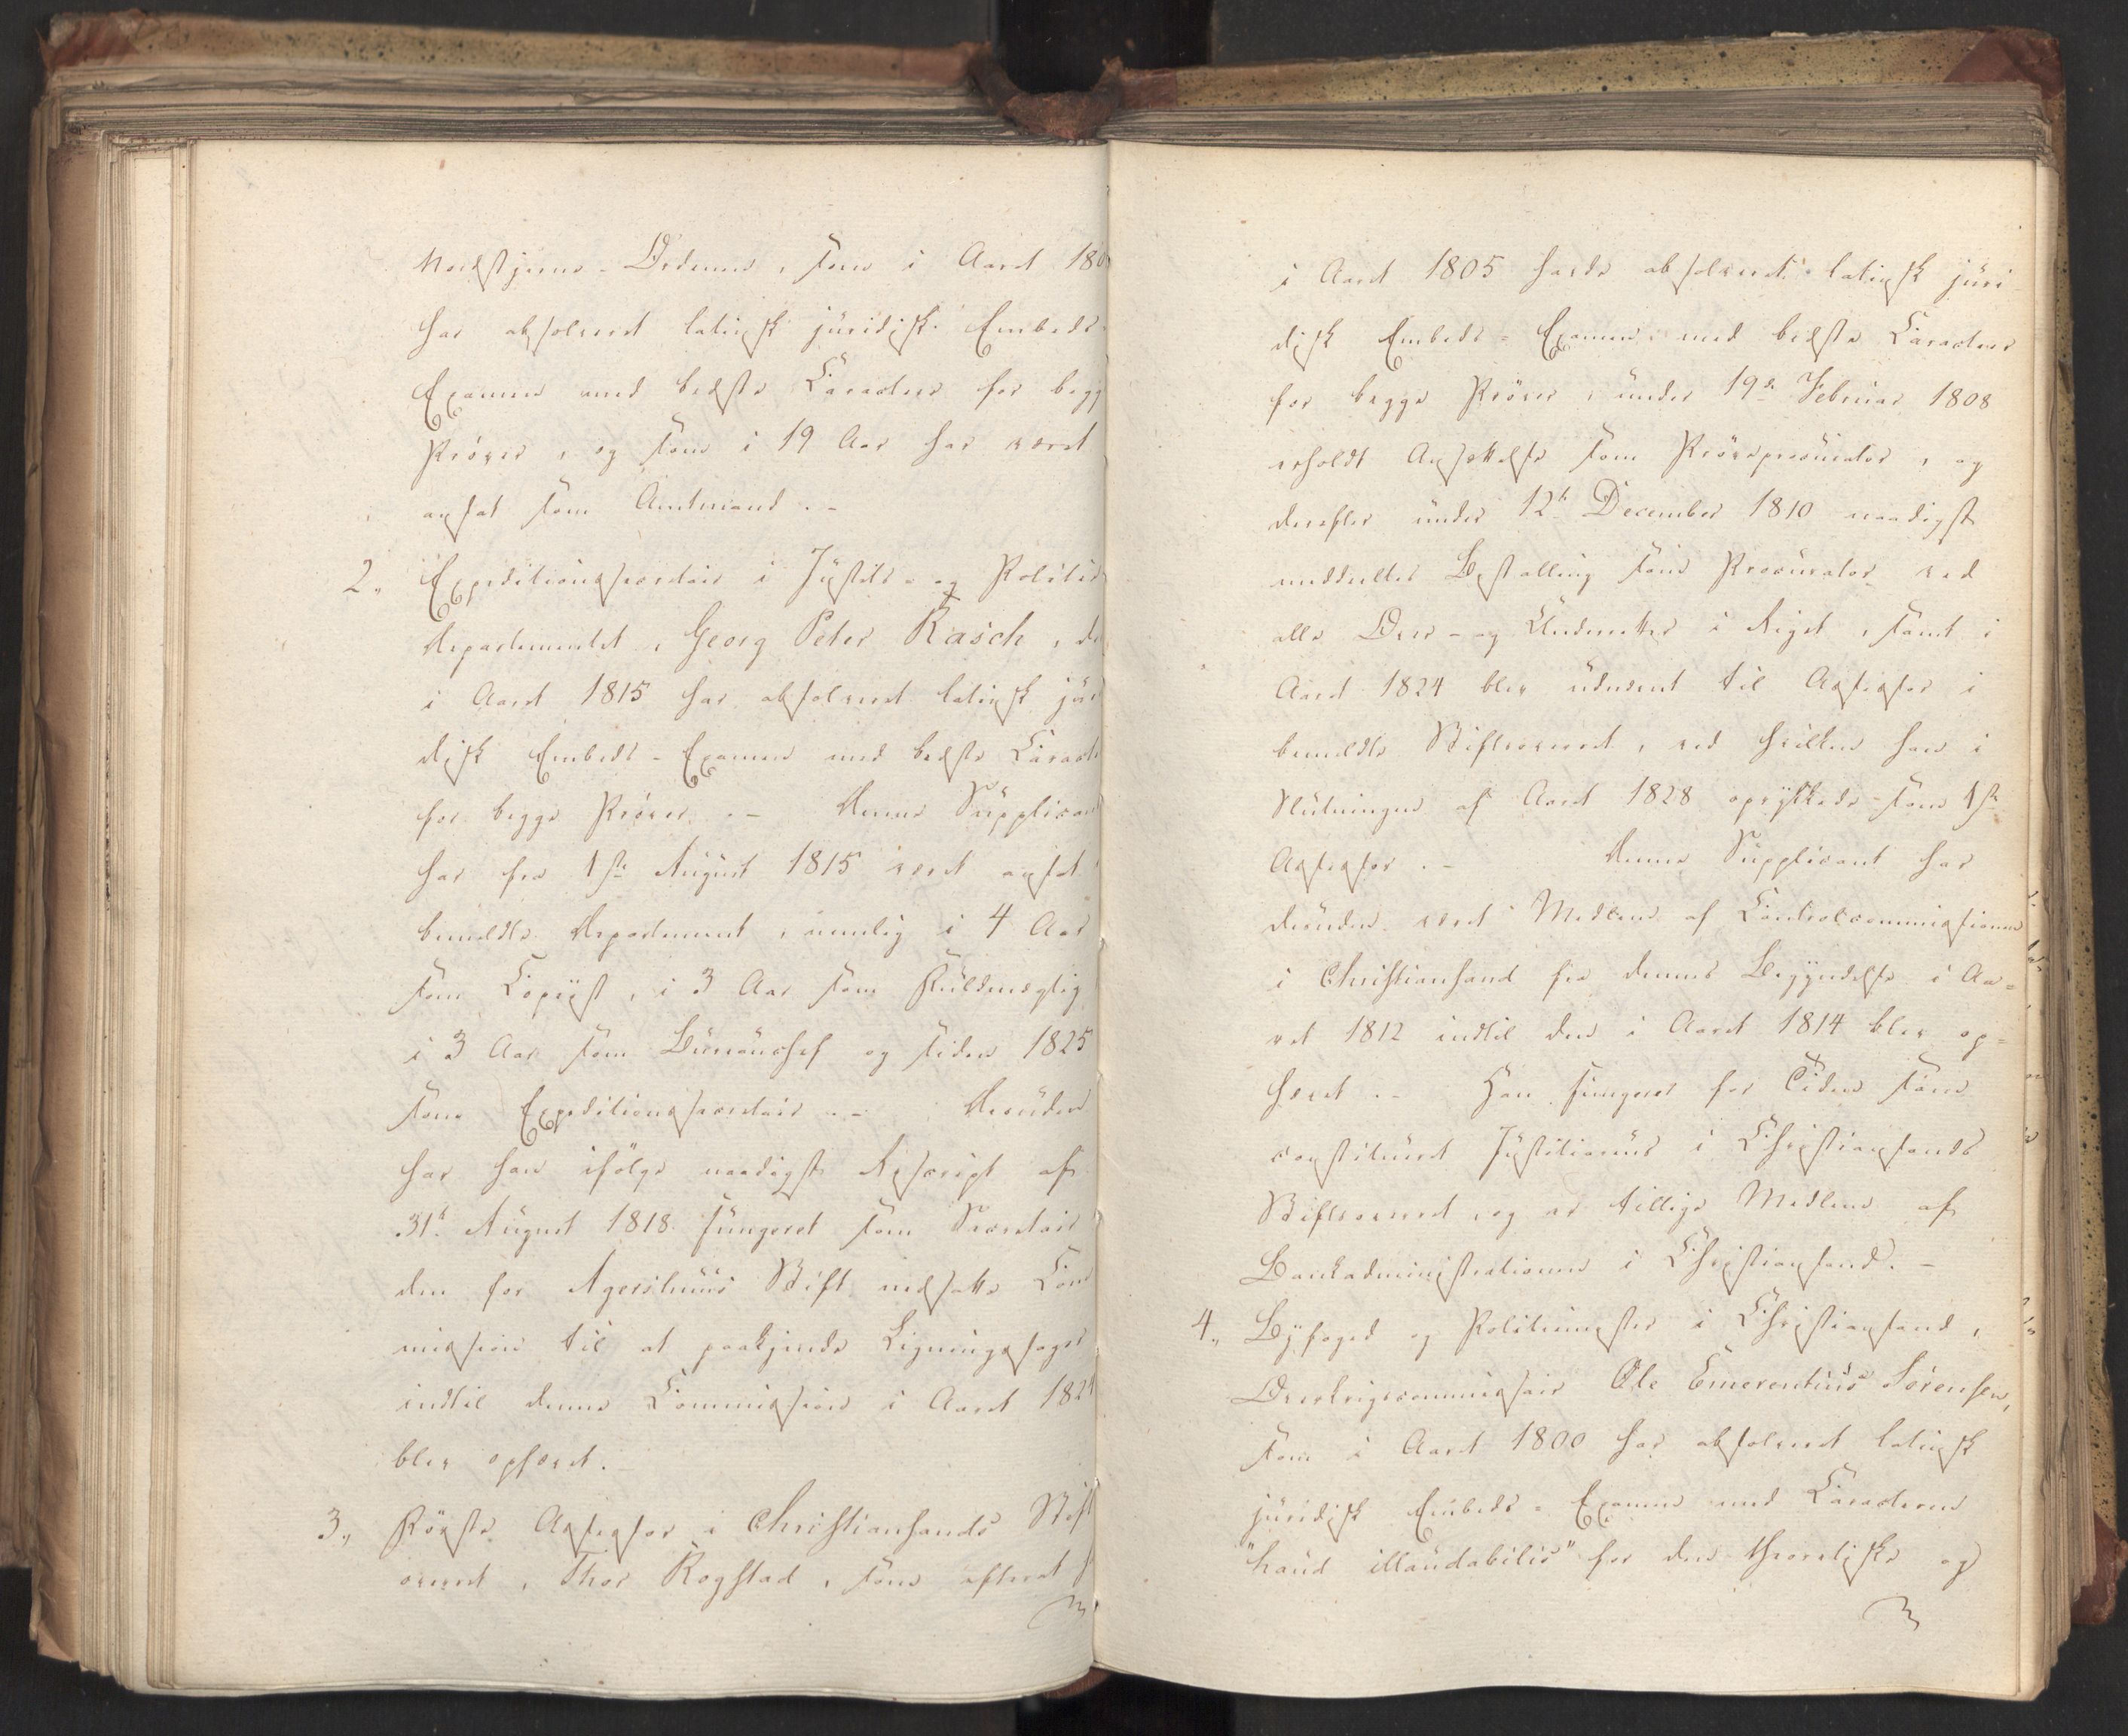 Nordstjerne-Ordenen, som i Aaret 180
har absolveret latinsk juridisk Embeds-
Examen med bedste Caracteer for begg
Prøver, og som i 19 Aar har været
ansat som Amtmand. -
2., Expeditionssecretair i Justits- og Politie
Departementet, Georg Peter Rasch, de
i Aaret 1815 har absolveret latinsk juri
disk Embeds-Examen med bedste Caracte
for begge Prøver. - Denne Supplican
har fra 1ste August 1815 været ansat
bemeldte Departement, nemlig i 4 Aar
som Copiist, i 3 Aar som Fuldmægtig
i 3 Aar som Bureauchef og siden 1825
som Expeditionssecretair. - Desuden
har han ifølge naadigst Rescript af
31te August 1818 fungeret som Secretair
den for Agershuus Stift nedsatte Com
mission til at paakjende Ligningssager
indtil denne Commission i Aaret 182
blev ophævet. -
3., Første Assessor i Christiansands Stift
overret, Thor Rogstad, som efterat h
i Aaret 1805 havde absolveret latinsk juri
disk Embeds-Examen med bedste Caracteer
for begge Prøver, under 19de Februar 1808
erholdt Ansættelse som Prøveprocurator, og
derefter under 12te December 1810 naadigst
meddeeltes Bestalling som Procurator ved
alle Over- og Underretter i Riget, samt i
Aaret 1824 blev udnævnt til Assessor i
bemeldte Stiftsoverret, ved hvilken han i
Slutningen af Aaret 1828 oprykkede som 1ste
Assessor. - Denne Supplicant har
desuden været Medlem af Controlcommissionen
i Christiansand fra dennes Begyndelse i Aa-
ret 1812 indtil den i Aaret 1814 blev op-
hævet. - Han fungerer for Tiden som
constitueret Justitiarius i Christiansands
Stiftsoverret, og er tillige Medlem af
Bankadministrationen i Christiansand. -
4., Byfoged og Politiemester i Christiansand,
Overkrigscommissair Ole Emerentius Sørensen,
som i Aaret 1800 har absolveret latinsk
juridisk Embeds-Examen med Caracteren
"haud illaudabilis" for den theoretiske og